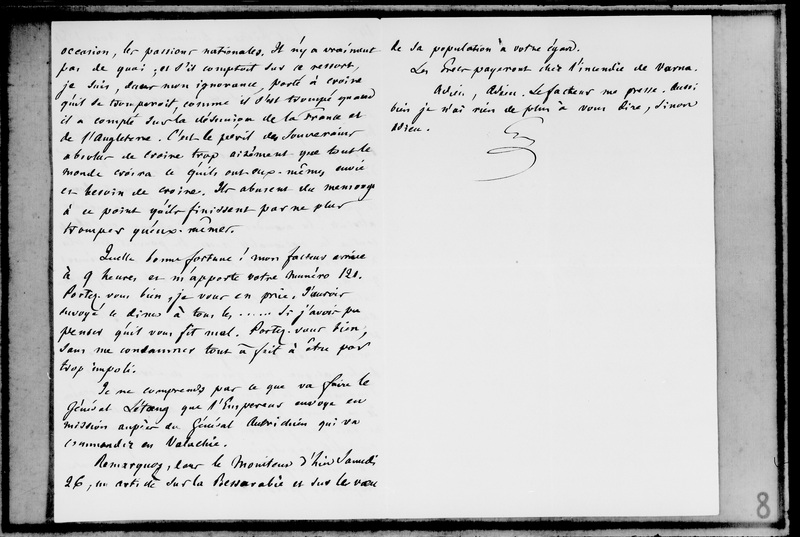 occasion, les passions nationales. Il n'y a vraiment
pas de quoi ; et s'il comptait sur ce ressort,
je suis, dans mon ignorance, porté à croire
qu'il se tromperoit, comme il s'est trompé quand
il a compté sur la désunion de la France et
de l'Angleterre. C'est le péril des Souverains
absolus de croire trop aisément que tout le
monde croira ce qu'ils ont eux-mêmes envie
et besoin de croire. Ils abusent du mensonge
à ce point qu'ils finissent par ne plus
tromper qu'eux-mêmes.
Quelle bonne fortune ! mon facteur arrive
à 9 heures et m'apporte votre numéro 121.
Portez-vous bien, je vous en prie. J'aurois
envoyé le diner à tous les ..... si j'avois pu
penser qu'il vous fit mal. Portez-vous bien,
sans me condamner tout à fait à être par
trop impoli.
Je ne comprends pas ce que va faire le
Général Létang que l'Empereur envoye en
mission auprès du Général Autrichien qui va
commander en Valachie.
Remarquez, dans le Moniteur d'hier Samedi
26, un article sur la Bessarabie et sur le vœu
de sa population à votre égard.
Les Grecs payeront cher l'incendie de Varna.
Adieu, Adieu. Le facteur me presse. Aussi
bien je n'ai rien de plus à vous dire, sinon
adieu.
G
8